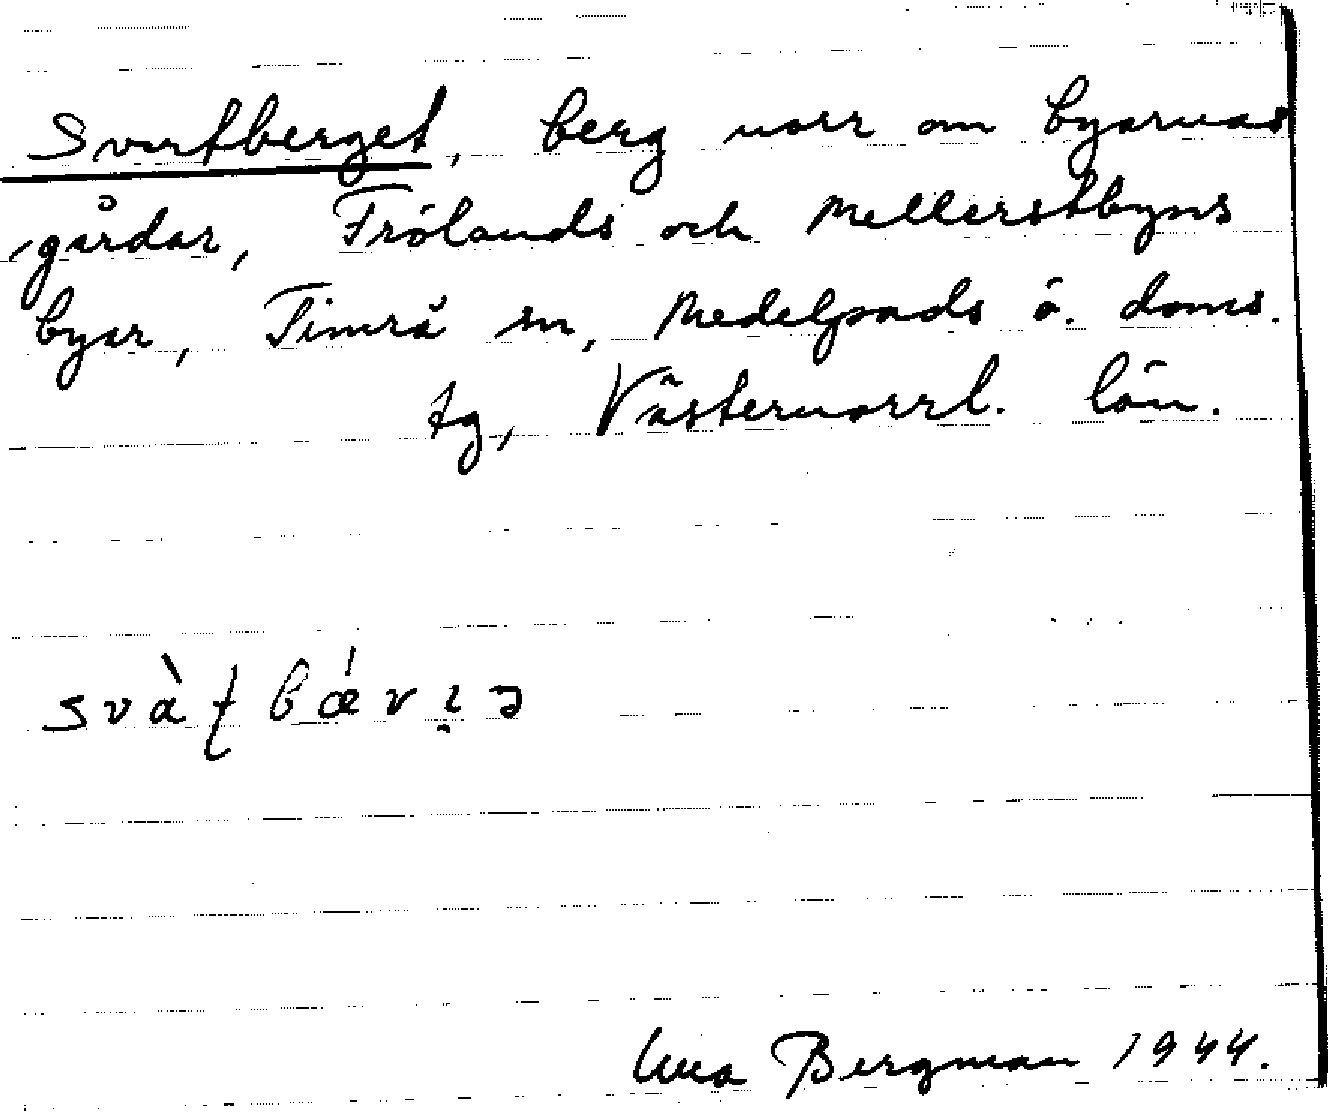 Svartberget, berg norr om byarnas
gårdar, Frölands och Mellerstbyns
byar, Timrå sn, Medelpads ö. doms.
tg, Västernorrl. län.
Bergman 1944.